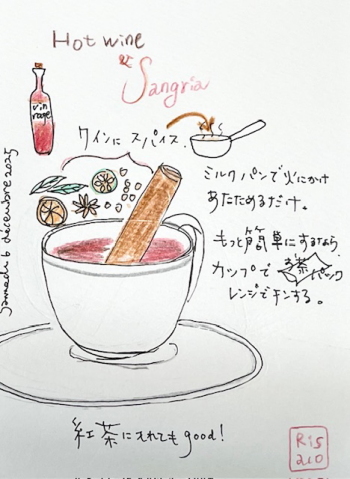 Hot wine
et
Sangria
vin
rouge
ワインに スパイス.
ミルクパンで火にかけ
あたためるだけ。
もっと簡単にするなら
カップで お茶パック
レンジでチンする。
samedi 6 décembre 2025
紅茶に入れても good!
Ris
210